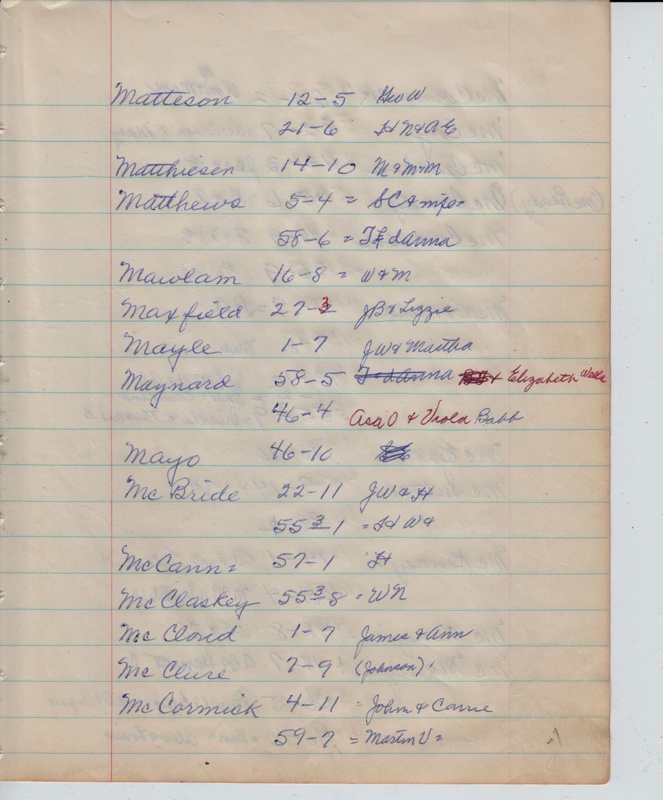 Matteson 12-5 Geo W
21-6 H N & A E
Matthiesen 14-10 M & M & M
Matthews 5-4 = S C &
58-6 = & Anna
Mawlam 16-8 = W & M
Maxfield 27-3 J B & Lizzie
Mayle 1-7 J W & Martha
Maynard 58-5 & Elizabeth
46-4 Asa O & Viola Babb
Mayo 46-10
McBride 22-11 J W & H
55 3-1 = H W &
McCann = 57-1 H
McClaskey 55 3-8 = W N
McCloud 1-7 James & Ann
McClure 7-9 (Johnson)
McCormick 4-11 = John & Carrie
59-7 = Martin V =